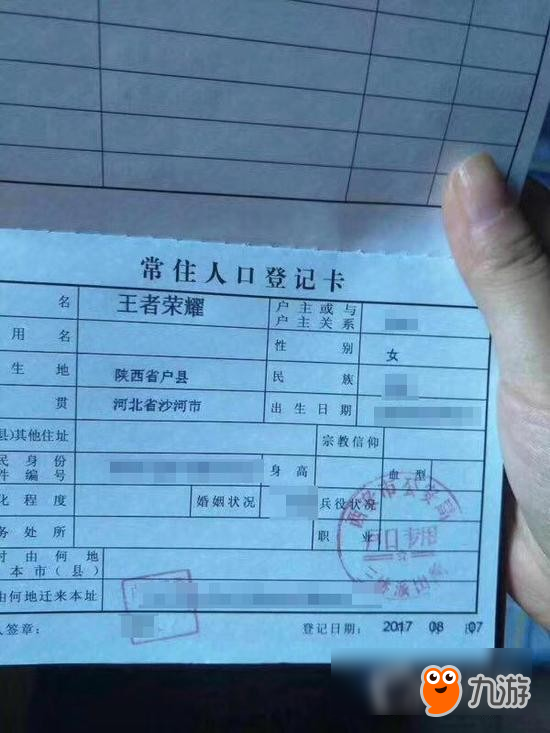 常住人口登记卡
名 王者荣耀 户主或与户主关系
用名 性别 女
生地 陕西省户县 民族
贯 河北省沙河市 出生日期
县)其他住址 宗教信仰
民身份件编号 身高 血型
化程度 婚姻状况 兵役状况
务处所 职业
时由何地本市(县)
由何地迁来本址
人签章: 登记日期: 2017 08 07
九游